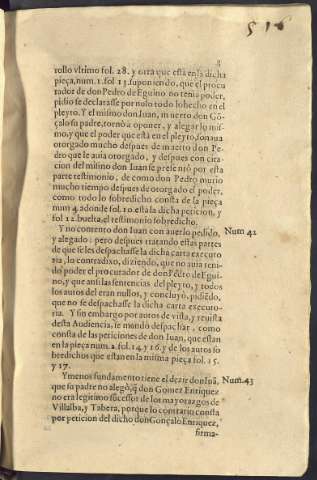 516
8
rollo vltimo fol. 28. y otra que està en la dicha
pieça, num. 1. fol. 15. suponiendo, que el procu
rador de don Pedro de Eguino no tenia poder,
pidio se declarasse por nulo todo lo hecho en el
pleyto. Y el mismo don Iuan, muerto don Gõ-
çalo su padre, tornò a oponer, y alegar lo mis-
mo, y que el poder que està en el pleyto, se auia
otorgado mucho despues de muerto don Pe-
dro que le auia otorgado, y despues con cita-
cion del mismo don Iuan se presentò por esta
parte testimonio, de como don Pedro murio
mucho tiempo despues de otorgado el poder,
como todo lo sobredicho consta de la pieça
num 4. donde fol. 10. està la dicha peticion, y
fol 12. buelta, el testimonio sobredicho.
Y no contento don Iuan con auerlo pedido, Num 42
y alegado: pero despues tratando estas partes
de que se les despachasse la dicha carta execu
ria, lo contradixo, diziendo, que no auia teni-
do poder el procurador de don Pedro de Egui-
no, y que assi las sentencias del pleyto, y todos
los autos del eran nullos, y concluyò, pidiẽdo,
que no se despachasse la dicha carta executo-
ria. Y sin embargo por autos de vista, y reuista
desta Audiencia, se mandò despachar, como
consta de las peticiones de don Iuan, que estan
en la pieça num. 2. fol. 14. y 16. y de los autos so
bredichos que estan en la misma pieça fol. 15.
y 17.
Y menos fundamento tiene el dezir don Iuã, Num. 43
que su padre no alegò, q̃ don Gomez Enriquez
no era legitimo sucessor de los mayorazgos de
Villalba, y Tabera, porque lo contrario consta
por peticion del dicho don Gonçalo Enriquez,
firma-